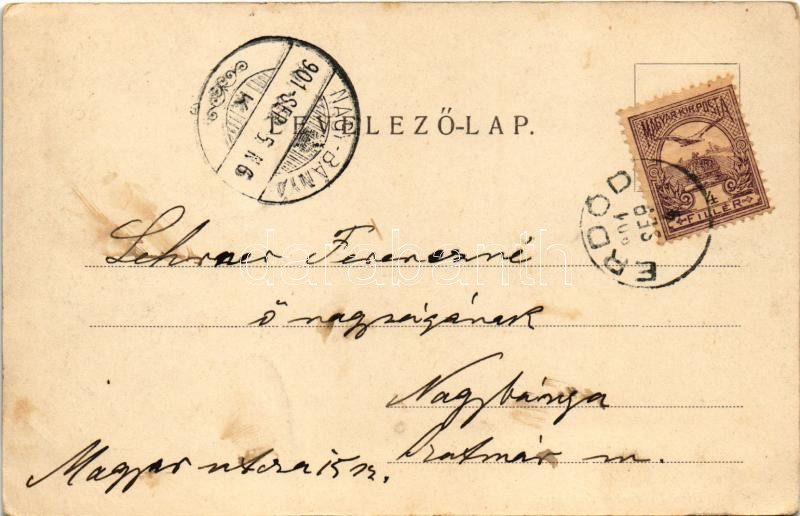 LEVELEZŐ-LAP.
NAGY-BÁNYA
901 SEP. 5. N6
K
MAGYAR KIR. POSTA
FILLÉR
ERDŐD
901
SEP
4
Ferencné
ő nagyságának
Nagybánya
Szatmár m.
Magyar utcza 15 sz.
darabanth